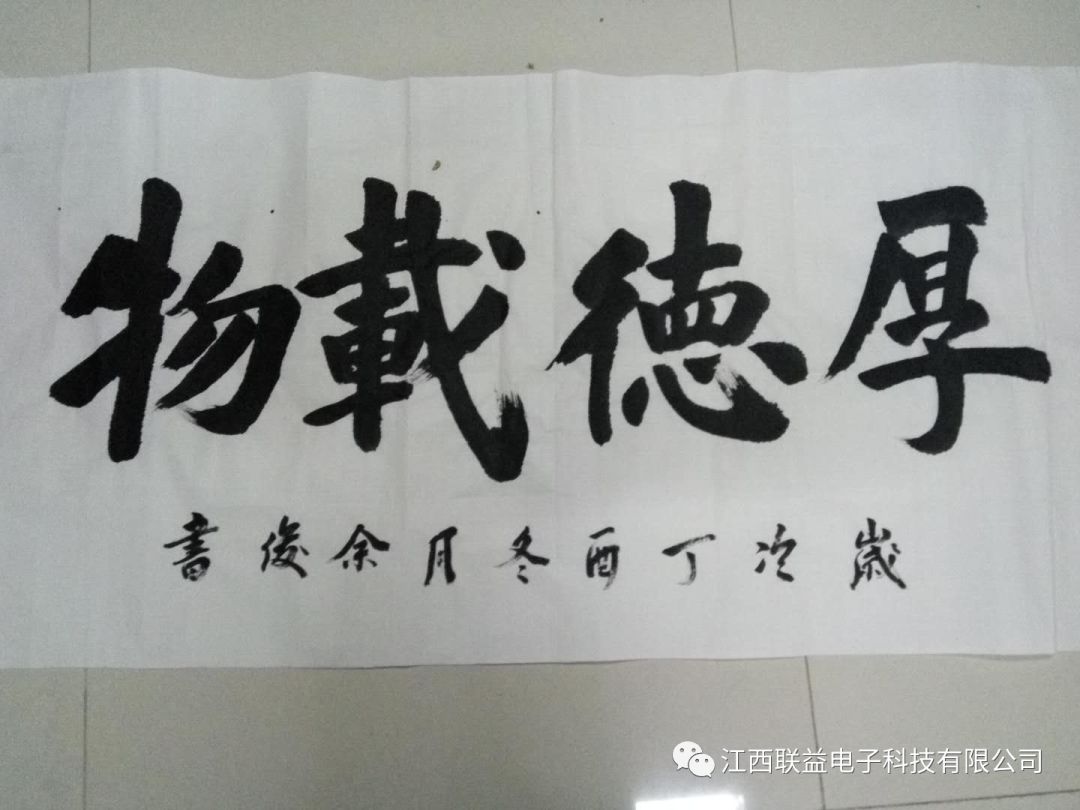 厚德載物
歲次丁酉冬月余俊書
江西联益电子科技有限公司